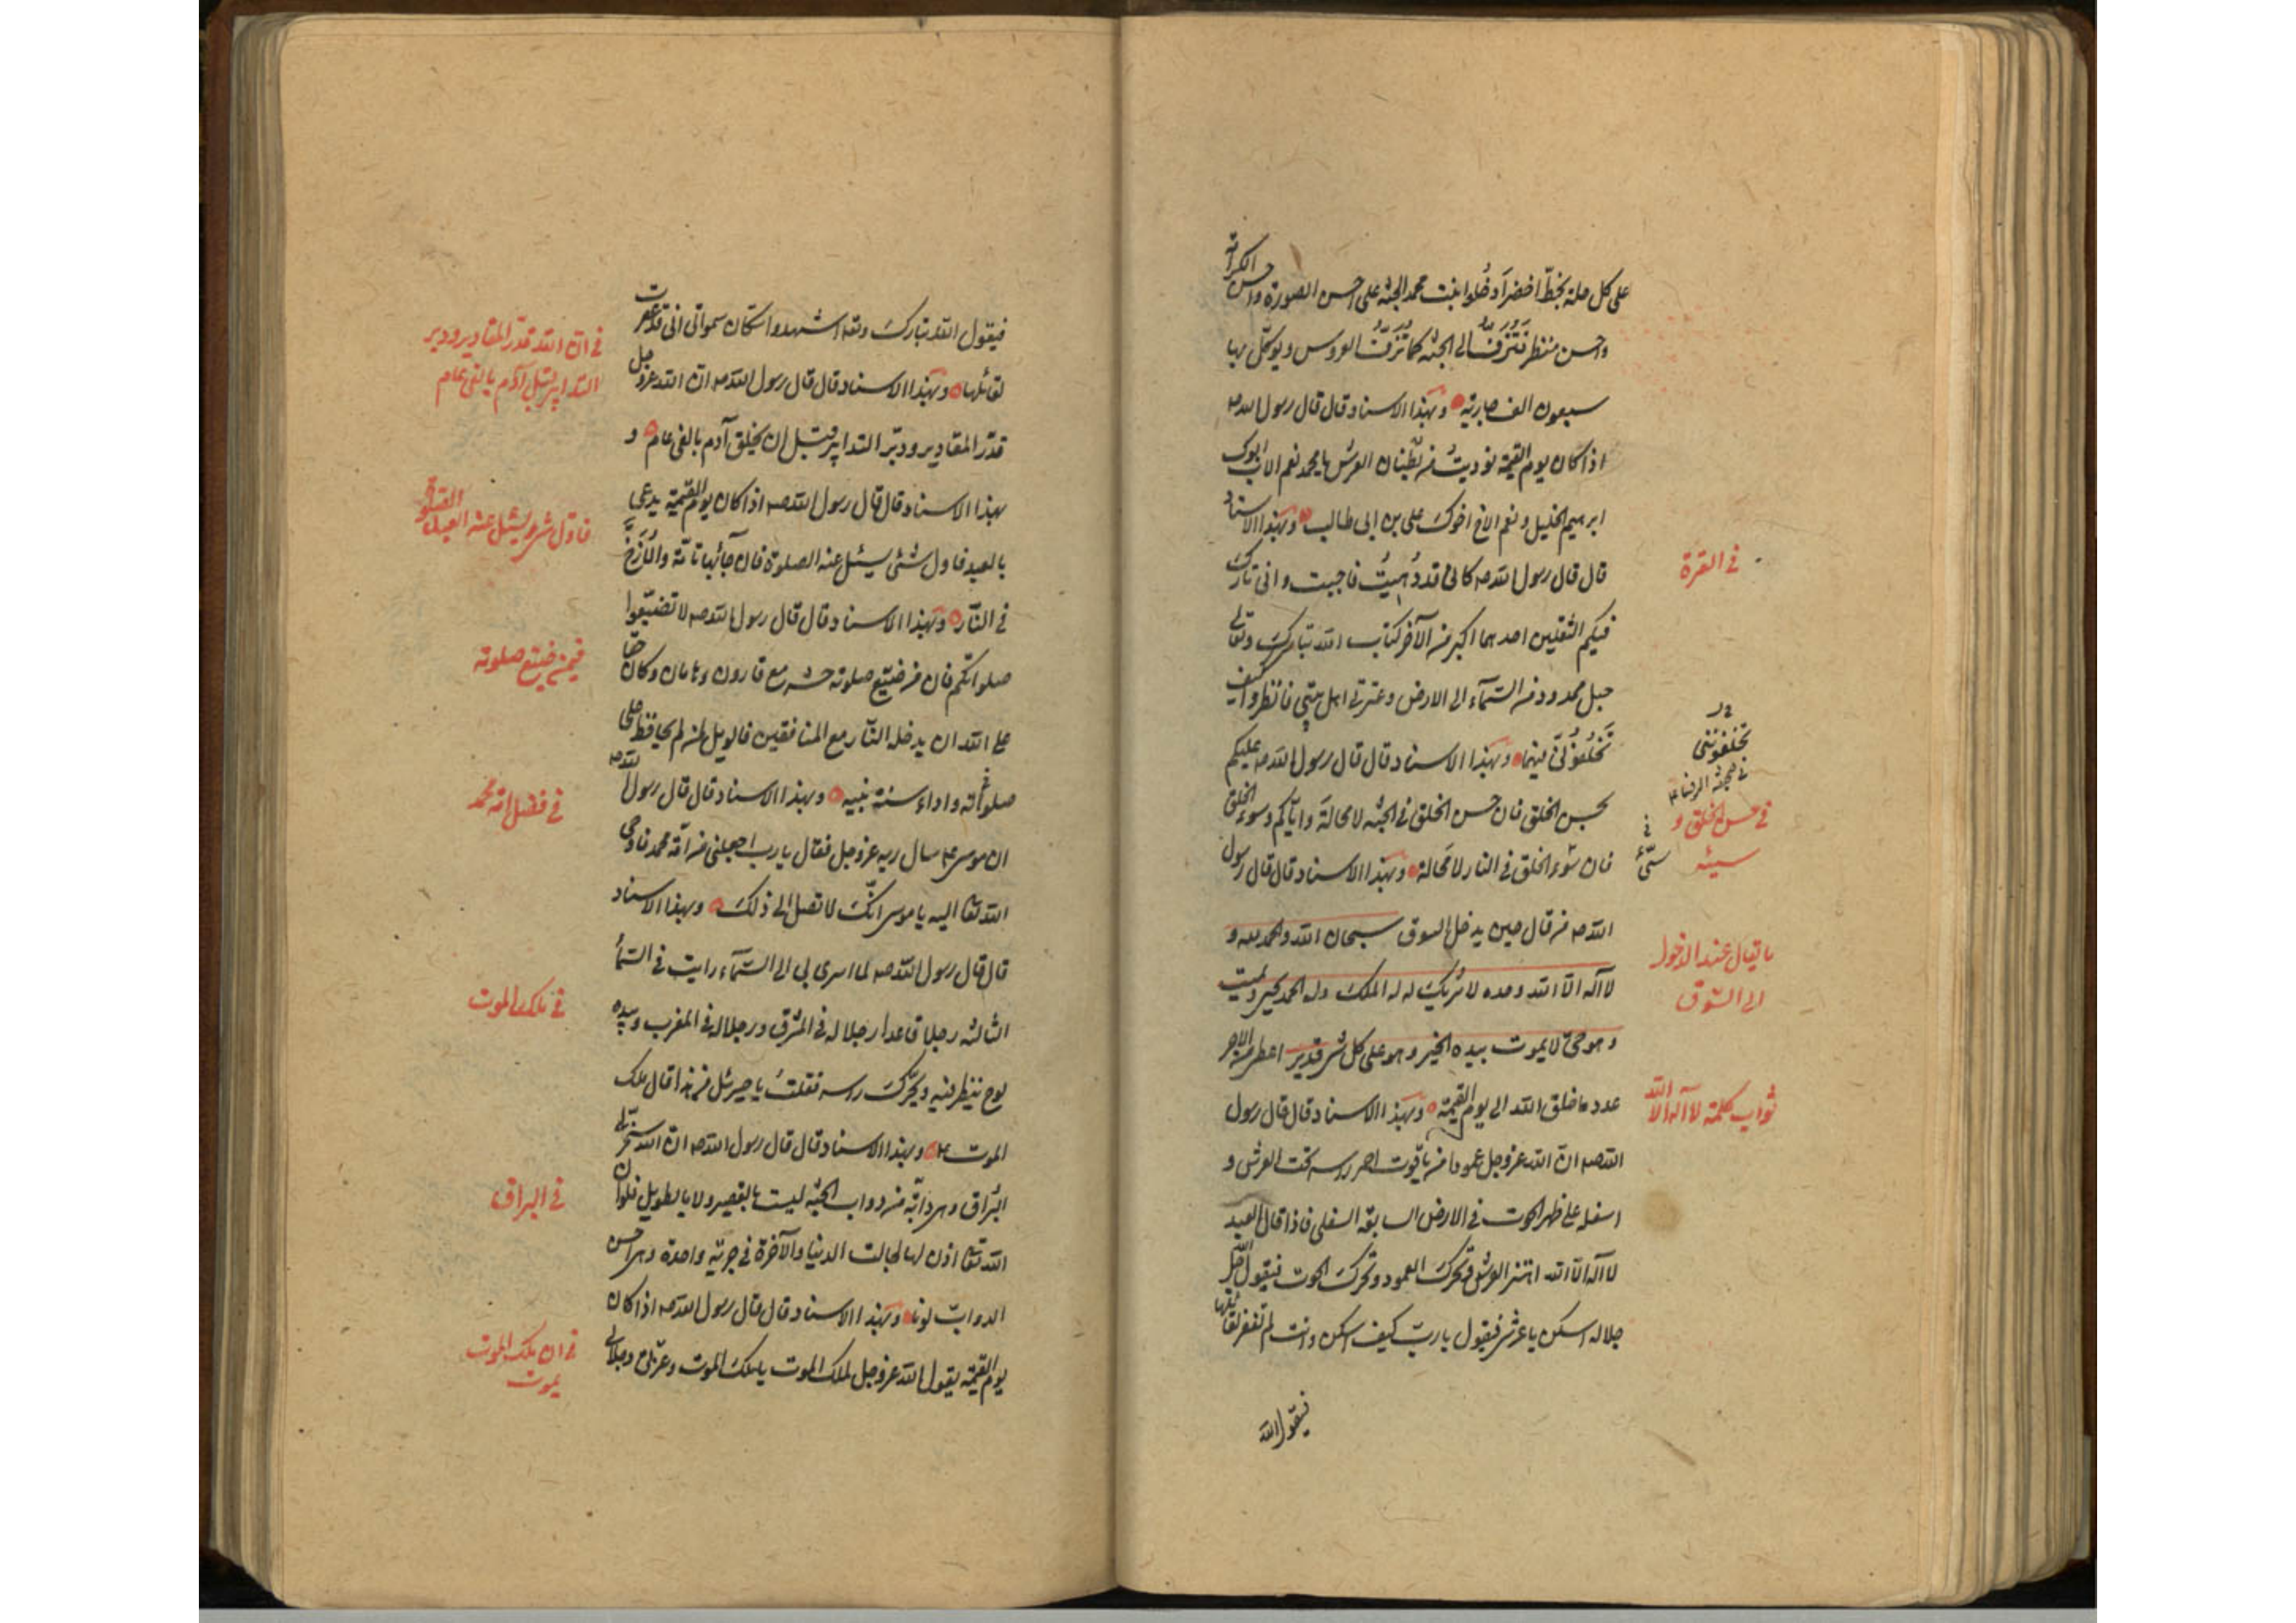 على كل حلة بخط اخضر ادخلوا بنت محمد الجنة على احسن الصورة واحسن الكرامة
واحسن منظر فتزف الى الجنة كما تزف العروس ويوكل بها
سبعون الف جارية وبهذا الاسناد قال قال رسول الله ص
اذا كان يوم القيمة نوديت من بطنان العرش يا محمد نعم الاب ابوك
ابرهيم الخليل ونعم الاخ اخوك على بن ابى طالب وبهذا الاسناد
قال قال رسول الله ص كانى قد دعيت فاجبت وانى تارك
فيكم الثقلين احدهما اكبر من الآخر كتاب الله تبارك وتعالى
حبل ممدود من السماء الى الارض وعترتى اهل بيتى فانظروا كيف
تخلفونى فيهما وبهذا الاسناد قال قال رسول الله ص عليكم
بحسن الخلق فان حسن الخلق فى الجنة لا محالة واياكم وسوء الخلق
فان سوء الخلق فى النار لا محالة وبهذا الاسناد قال قال رسول
الله ص من قال حين يدخل السوق سبحان الله والحمد لله و
لا اله الا الله وحده لا شريك له له الملك وله الحمد يحيى ويميت
وهو حى لا يموت بيده الخير وهو على كل شئ قدير اعطى من الاجر
عدد ما خلق الله الى يوم القيمة وبهذا الاسناد قال قال رسول
الله ص ان الله عز وجل عمودا من ياقوت احمر راسه تحت العرش و
اسفله على ظهر الحوت فى الارض السابعة السفلى فاذا قال العبد
لا اله الا الله اهتز العرش وتحرك العمود وتحرك الحوت فيقول الله جل
جلاله اسكن يا عرشى فيقول يا رب كيف اسكن وانت لم تغفر لقائلها
فيقول الله
فى العترة
تخلفوننى
فى حسن الخلق و
سيئه
ما يقال عند الدخول
الى السوق
ثواب كلمة لا اله الا الله
فيقول الله تبارك وتعا اشهدوا سكان سمواتى انى قد غفرت
لقائلها وبهذا الاسناد قال قال رسول الله ص ان الله عز وجل
قدر المقادير ودبر التدابير قبل ان يخلق آدم بالفى عام و
بهذا الاسناد قال قال رسول الله ص اذا كان يوم القيمة يدعى
بالعبد فاول شئ يسئل عنه الصلوة فان جائبها تامة والا زخ
فى النار وبهذا الاسناد قال قال رسول الله ص لا تضيعوا
صلواتكم فان من ضيع صلوته حشر مع قارون وهامان وكان حقا
على الله ان يدخله النار مع المنافقين فالويل لمن لم يحافظ على
صلواته واداء سنة نبيه وبهذا الاسناد قال قال رسول الله ص
ان موسى ع سال ربه عز وجل فقال يا رب اجعلنى من امة محمد فاوحى
الله تعا اليه يا موسى انك لا تصل الى ذلك وبهذا الاسناد
قال قال رسول الله ص لما اسرى بى الى السماء رايت فى السماء
الثالثة رجلا قاعدا رجلا له فى المشرق ورجلا له فى المغرب وبيده
لوح ينظر فيه ويحرك راسه فقلت يا جبرئيل من هذا قال ملك
الموت ع وبهذا الاسناد قال قال رسول الله ص ان الله سخر لى
البراق وهى دابة من دواب الجنة ليست بالقصير ولا بالطويل فلو ان
الله تعا اذن لها لجالت الدنيا والآخرة فى جرية واحدة وهى احسن
الدواب لونا وبهذا الاسناد قال قال رسول الله ص اذا كان
يوم القيمة يقول الله عز وجل لملك الموت يا ملك الموت وعزتى وجلالى
فى ان الله قدر المقادير ودبر
التدابير قبل آدم بالفى عام
فاول شئ يسئل عنه العبد الصلوة
فيمن ضيع صلوته
فى فضل امة محمد
فى ملك الموت
فى البراق
فى ان ملك الموت
يموت